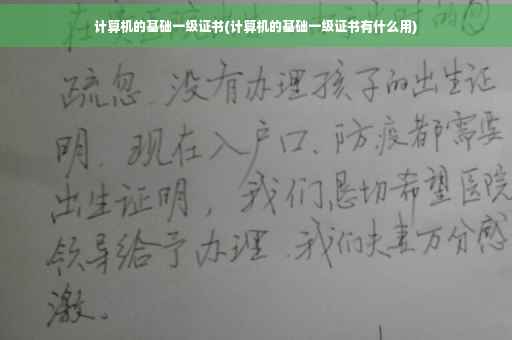 计算机的基础一级证书(计算机的基础一级证书有什么用)
疏忽、没有办理孩子的出生证
明、现在入户口、防疫都需要
出生证明，我们恳切希望医院
领导给予办理、我们夫妻万分感
激。